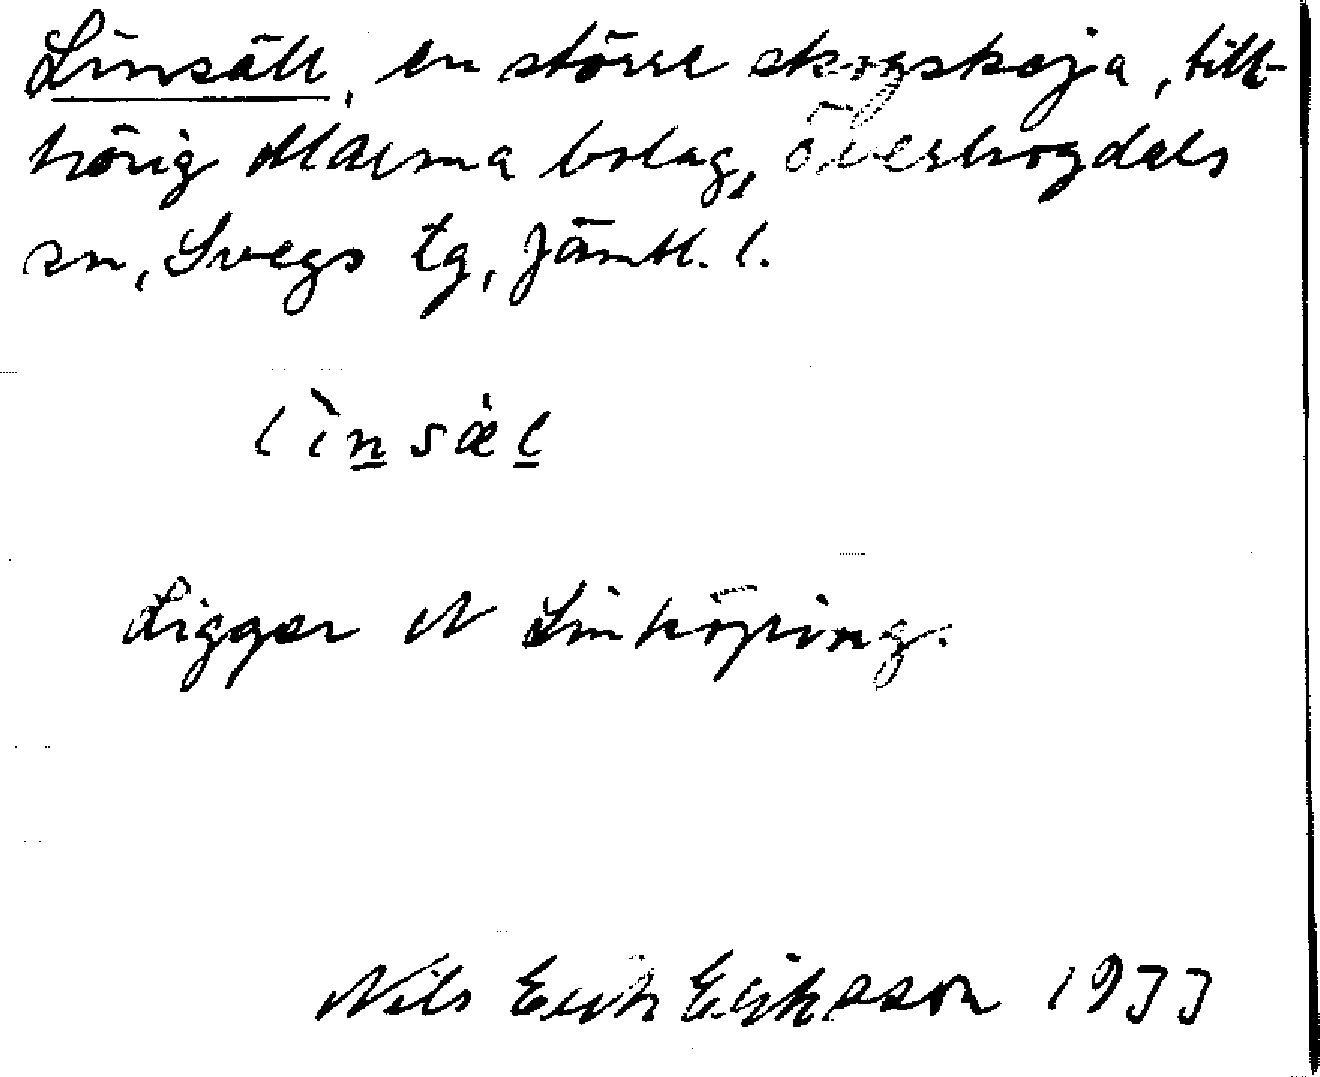 Linsäll, en större skogskoja, till-
hörig Marma bolag, Överhogdals
sn, Svegs tg, Jämtl. l.
lìnsæ̀l
Ligger N Linköping.
Nils Erik Eriksson 1933